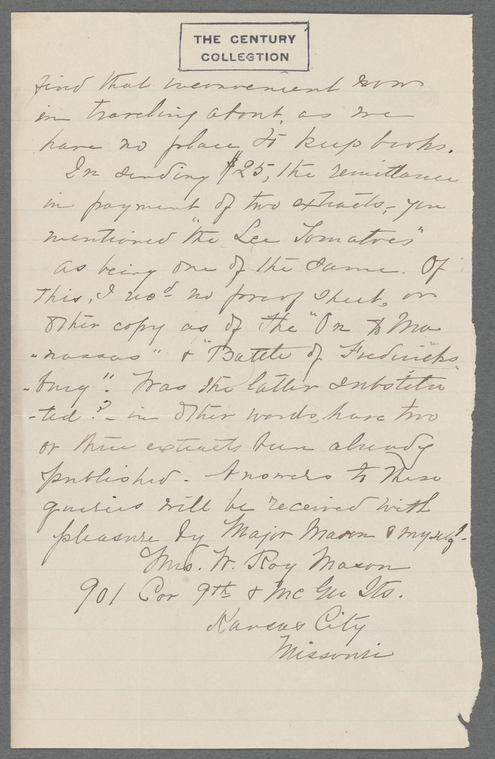 THE CENTURY
COLLECTION
find that inconvenient now
in traveling about, as we
have no place to keep books.
In sending $25, the remittance
in payment of two extracts, you
mentioned "the Lee Tomatoes"
as being one of the same. Of
this, I rec'd no proof sheet, or
other copy as of the "On to Ma-
-nassas" & "Battle of Fredericks-
-burg". Was the latter substitu-
-ted? - in other words, have two
or three extracts been already
published. Answers to these
queries will be received with
pleasure by Major Mason & myself.
Mrs. W. Roy Mason
901 Cor 9th & Mc Gee Sts.
Kansas City
Missouri